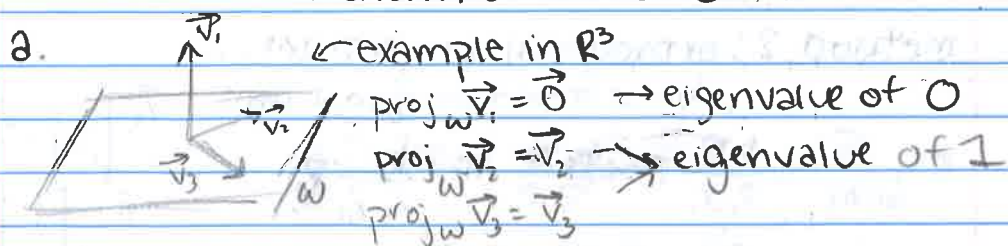 a. v⃗₁ ← example in R³
proj_W v⃗₁ = 0⃗ → eigenvalue of 0
v⃗₂ proj_W v⃗₂ = v⃗₂ → eigenvalue of 1
v⃗₃ W proj_W v⃗₃ = v⃗₃